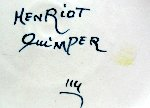 HENRIOT
QUIMPER
114